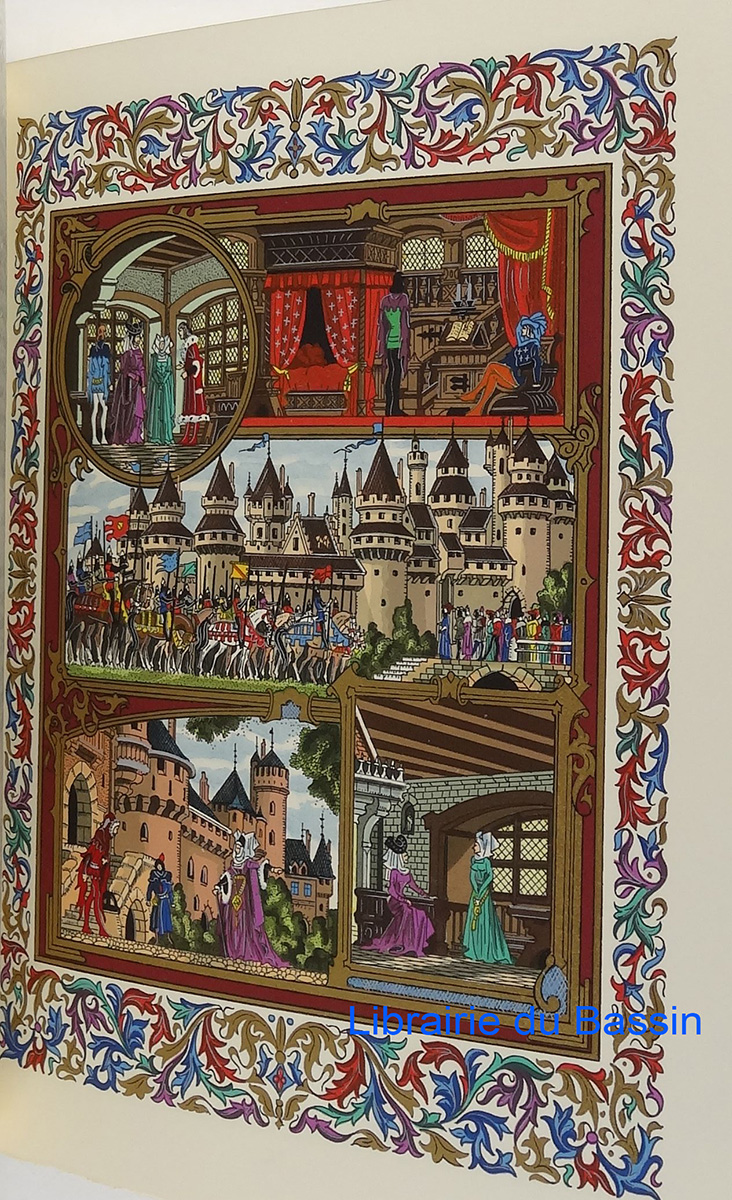 Librairie du Bassin